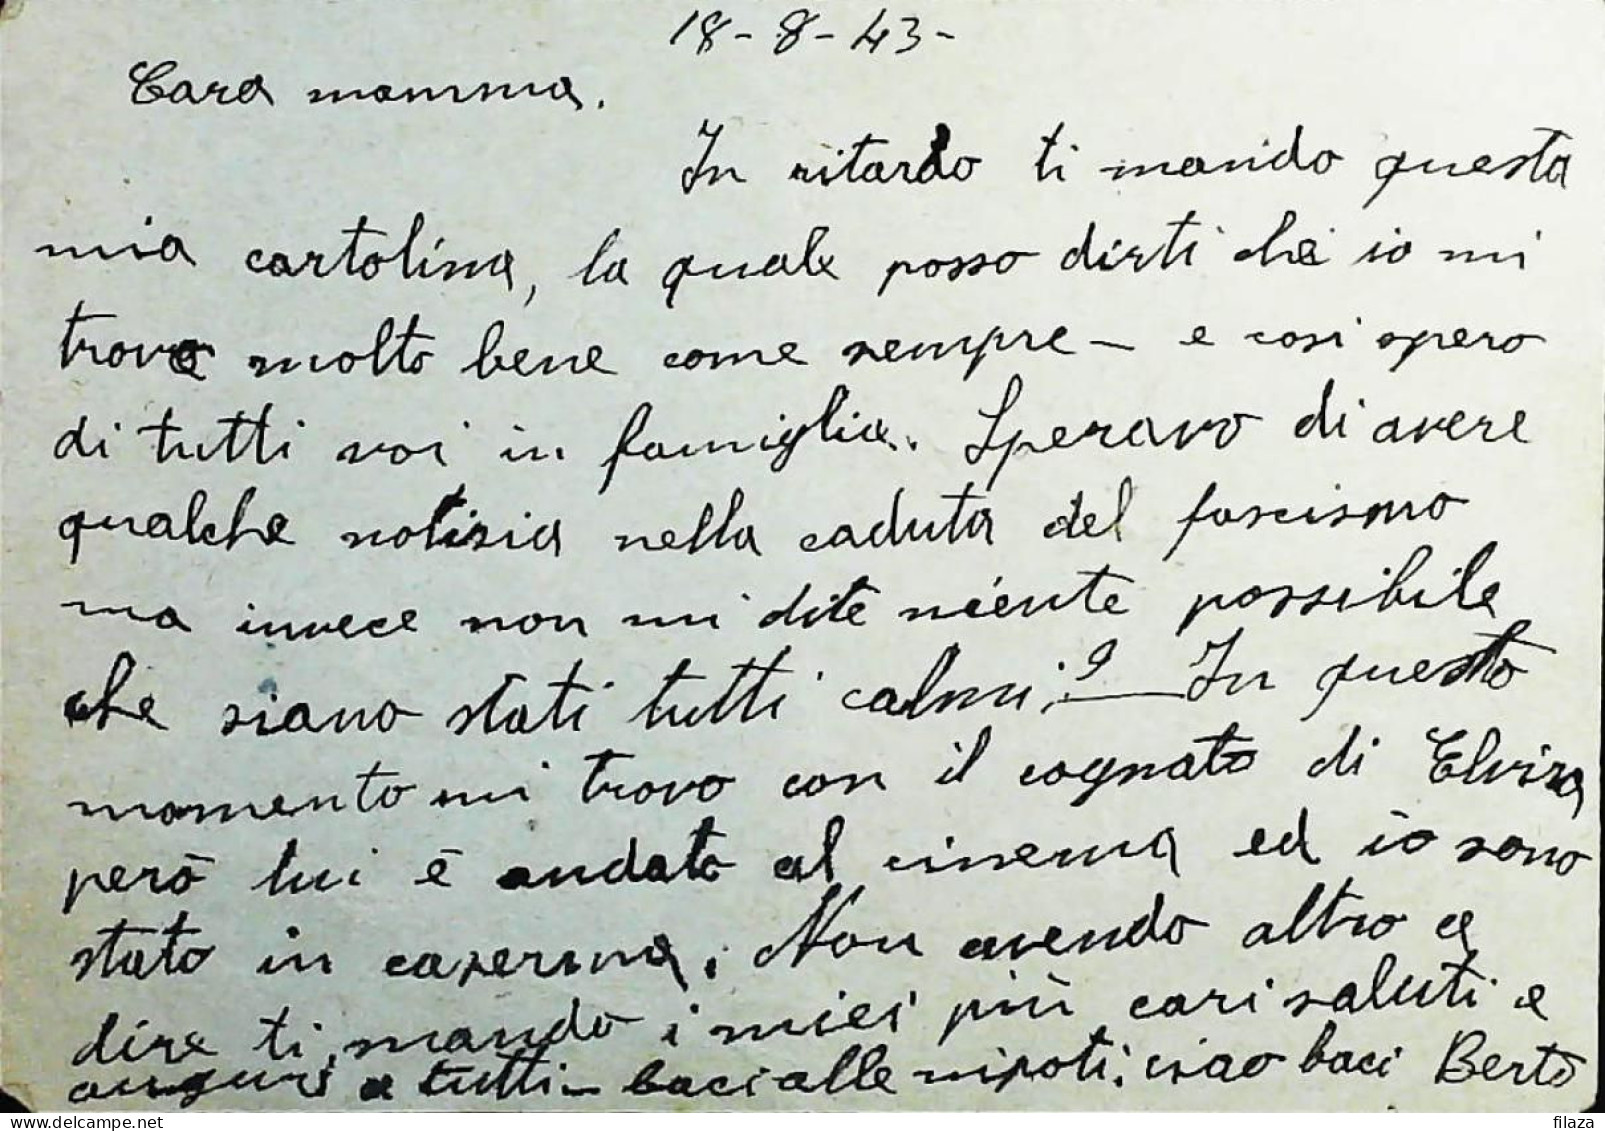 18-8-43-
Cara mamma.
In ritardo ti mando questa
mia cartolina, la quale posso dirti che io mi
trovo molto bene come sempre - e cosi spero
di tutti voi in famiglia. Speravo di avere
qualche notisia nella caduta del fascismo
ma invece non mi dite niente possibile
che siano stati tutti calmi? - In questo
momento mi trovo con il cognato di Elvira
però lui è andato al cinema ed io sono
stato in caserma. Non avendo altro a
dire ti mando i miei più cari saluti e
auguri a tutti - baci alle nipoti. ciao baci Berto
delcampe.net
filaza